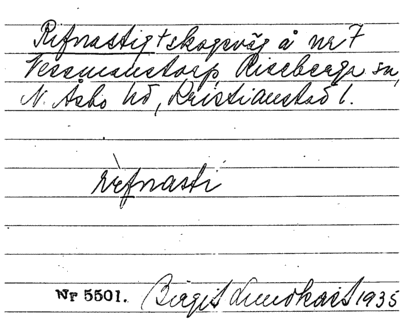 Refnastig + skogsväg å nr 7
Vessmanstorp, Riseberga sn,
N. Åsbo hd, Kristianstad l.
rèfnasti
Nr 5501. Birgit Lundkvist 1935